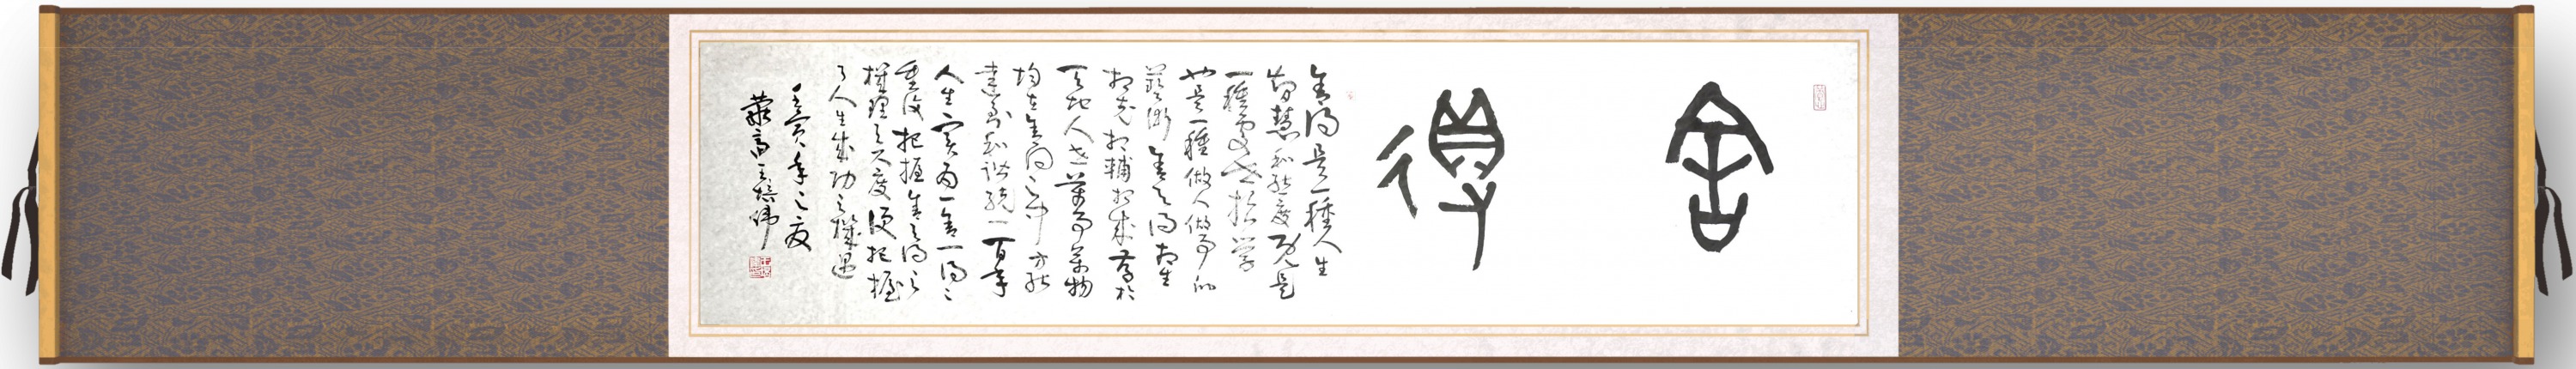 舍得
舍得是一種人生
智慧和態度既是
一種處世哲學
也是一種做人做事的
藝術舍與得相生
相克相輔相成存於
天地人世萬事萬物
均在舍得之中方能
達到和諧統一百年
人生實為一舍一得之
重複把握舍與得之
機理與尺度便把握
了人生成功之機遇
壬寅年之夏